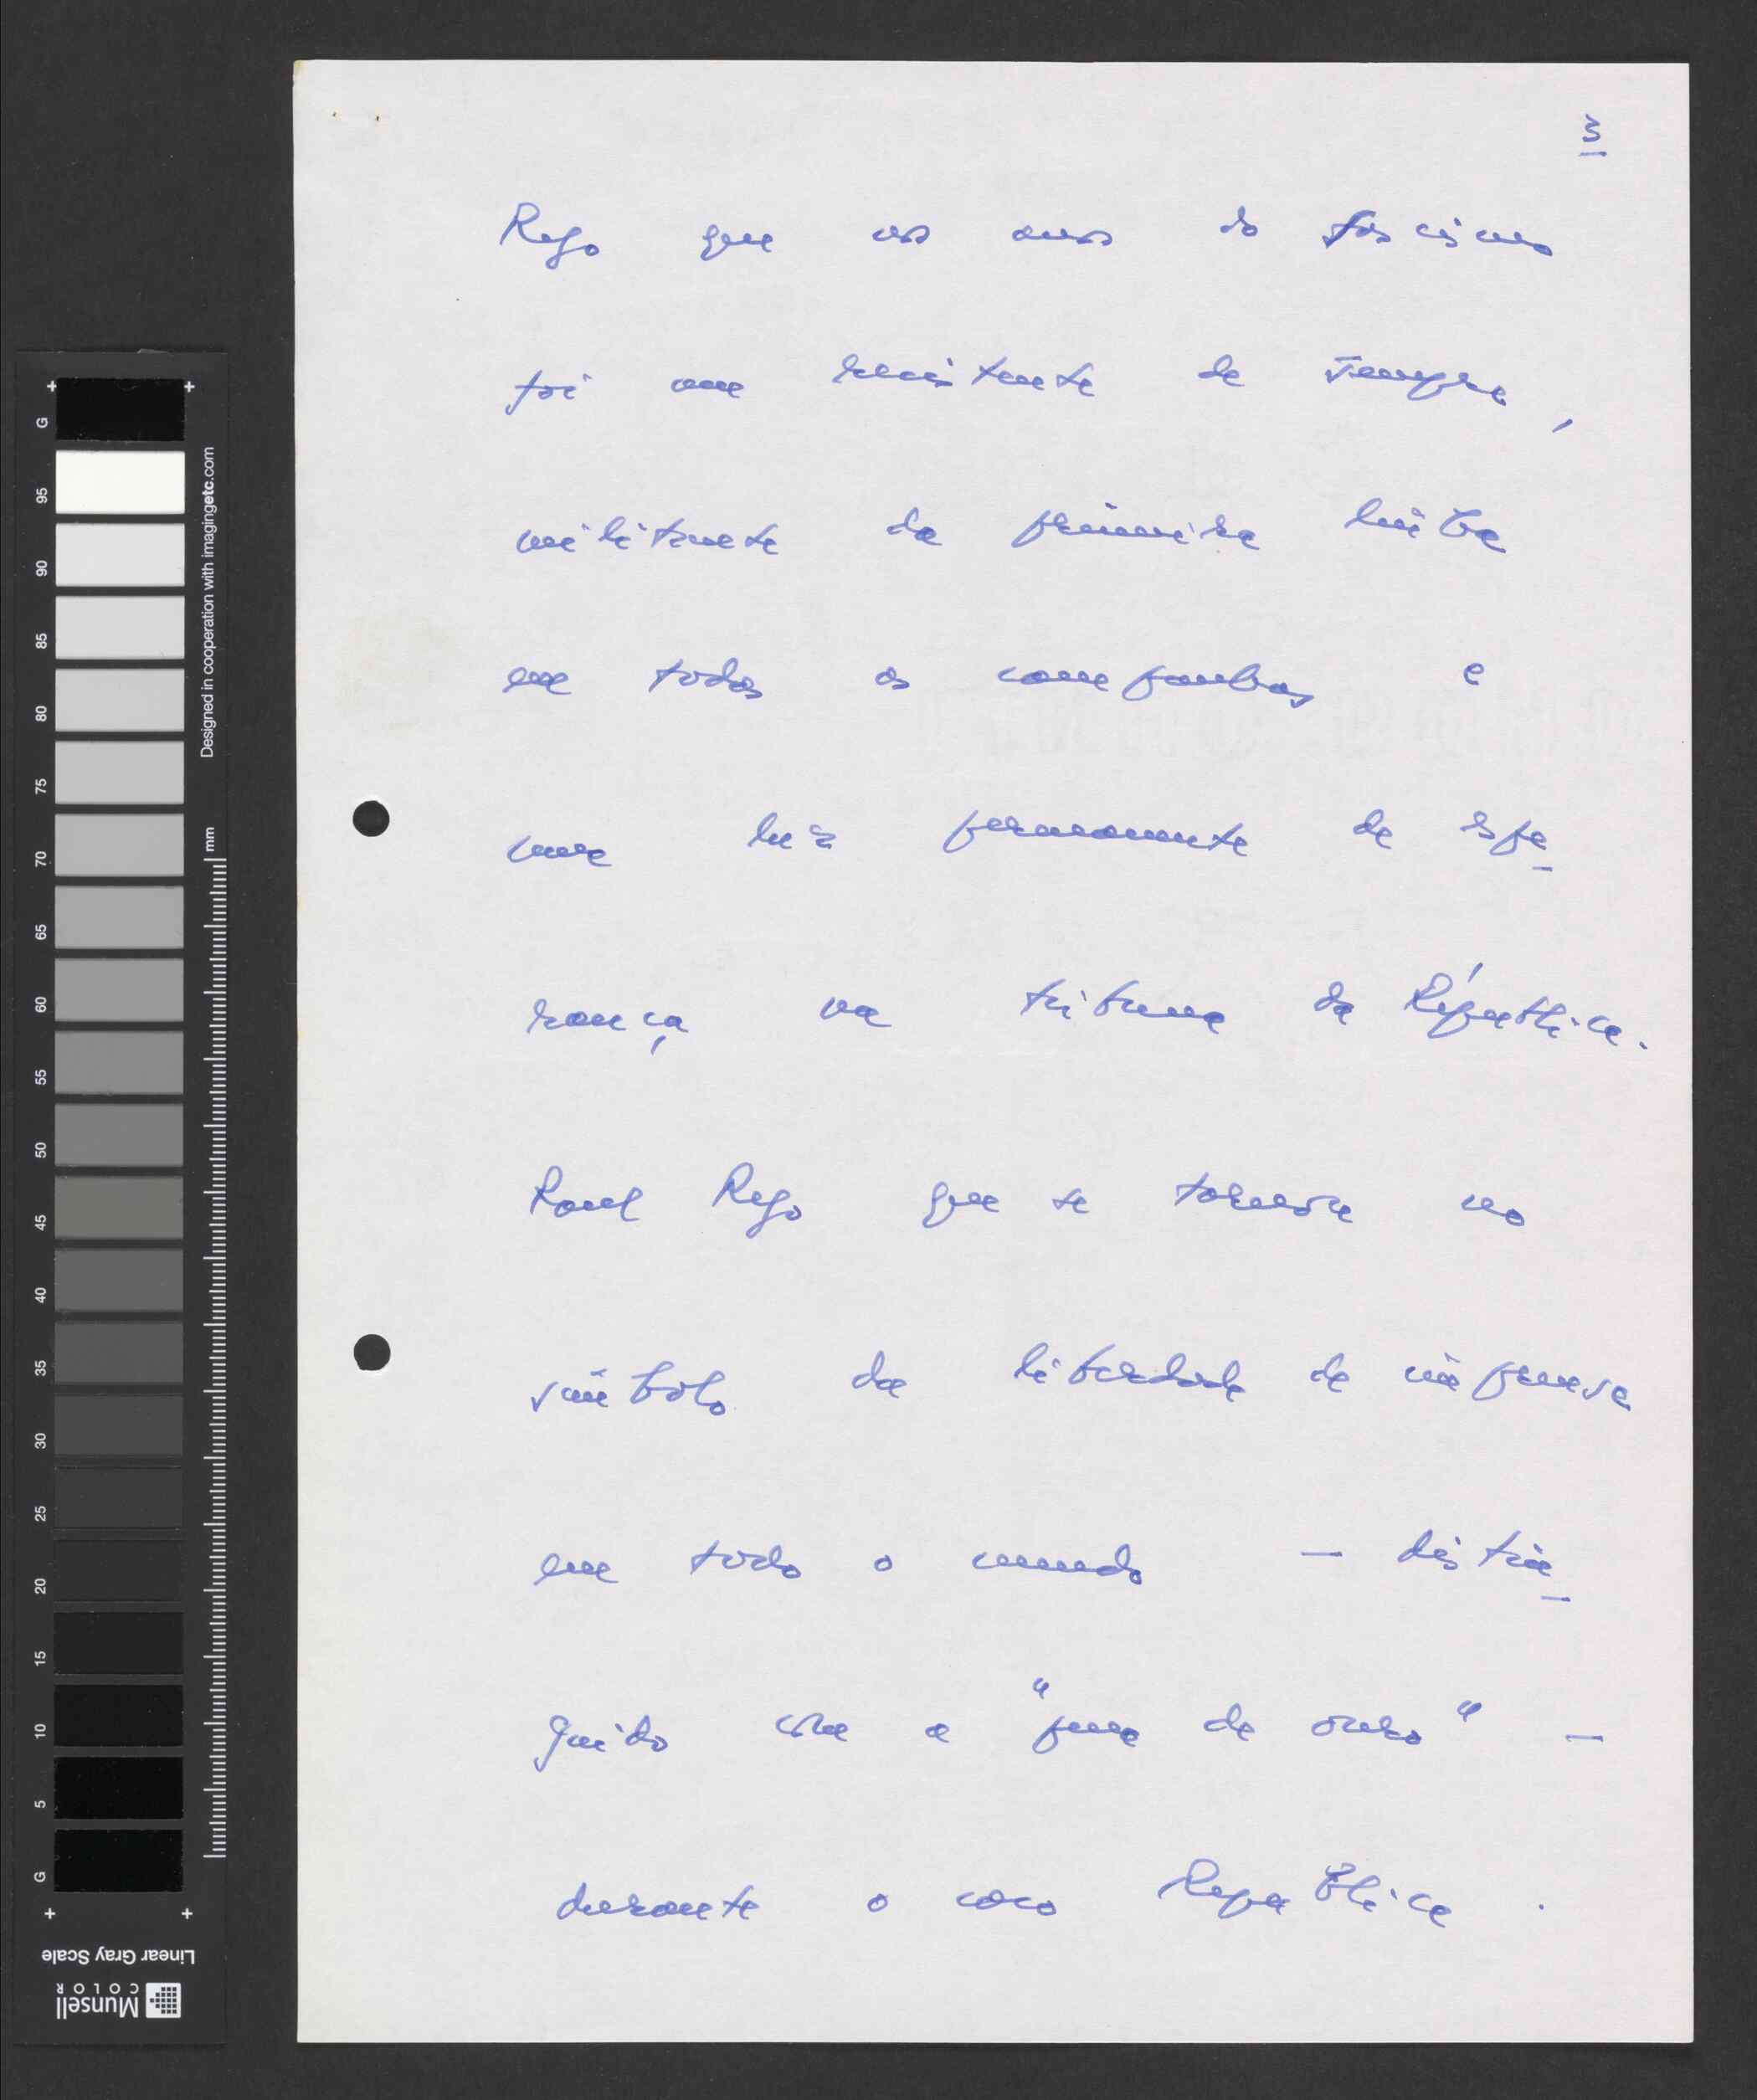 3
Rego que nos anos do fascismo
foi um resistente de sempre,
militante da primeira linha
em todos os combates e
uma luz permanente de espe-
rança na tribuna da República.
Raul Rego que se tornou no
símbolo da liberdade de imprensa
em todo o mundo — distin-
guido com a "pena de ouro" —
durante o caso República.
G 95 90 85 80 75 70 65 60 55 50 45 40 35 30 25 20 15 10 5 G
Designed in cooperation with imagingetc.com
mm
Linear Gray Scale
Munsell
COLOR